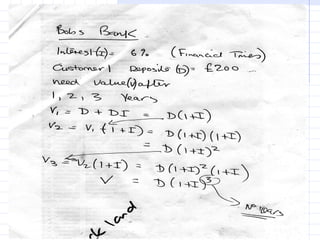 Bobs Bank
Interest (I) = 6% (Financial Times)
Customer 1 Deposits (D) = £200 ...
need value (V) after
1, 2, 3 Years
V₁ = D + DI = D(1+I)
V₂ = V₁ (1+I) = D(1+I)(1+I)
= D(1+I)²
V₃ = V₂(1+I) = D(1+I)²(1+I)
V = D(1+I)³
Nº years
land